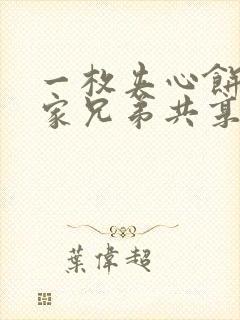 一枚夹心餅
家兄弟共享
葉偉超